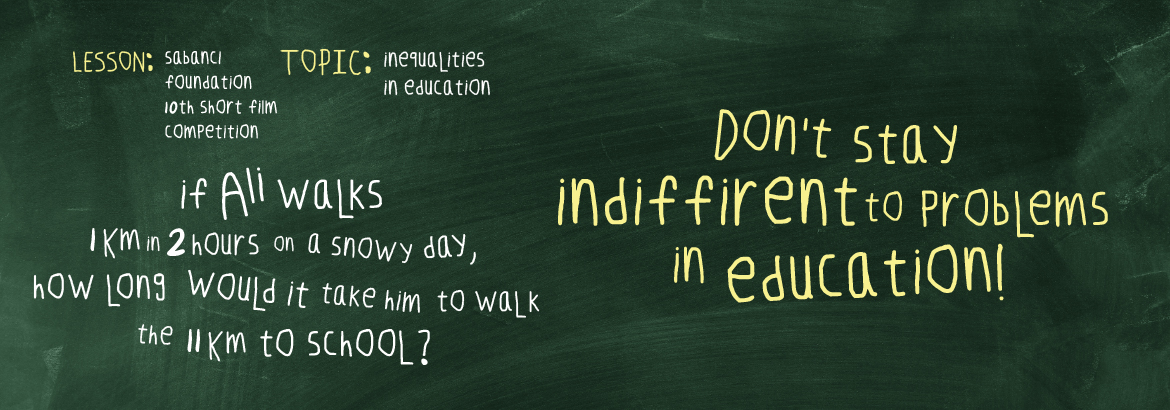 LESSON: sabancı
foundation
10th short film
competition
TOPIC: inequalities
in education
if Ali walks
1 km in 2 hours on a snowy day,
how long would it take him to walk
the 11 km to school?
Don't stay
indiffirent to problems
in education!